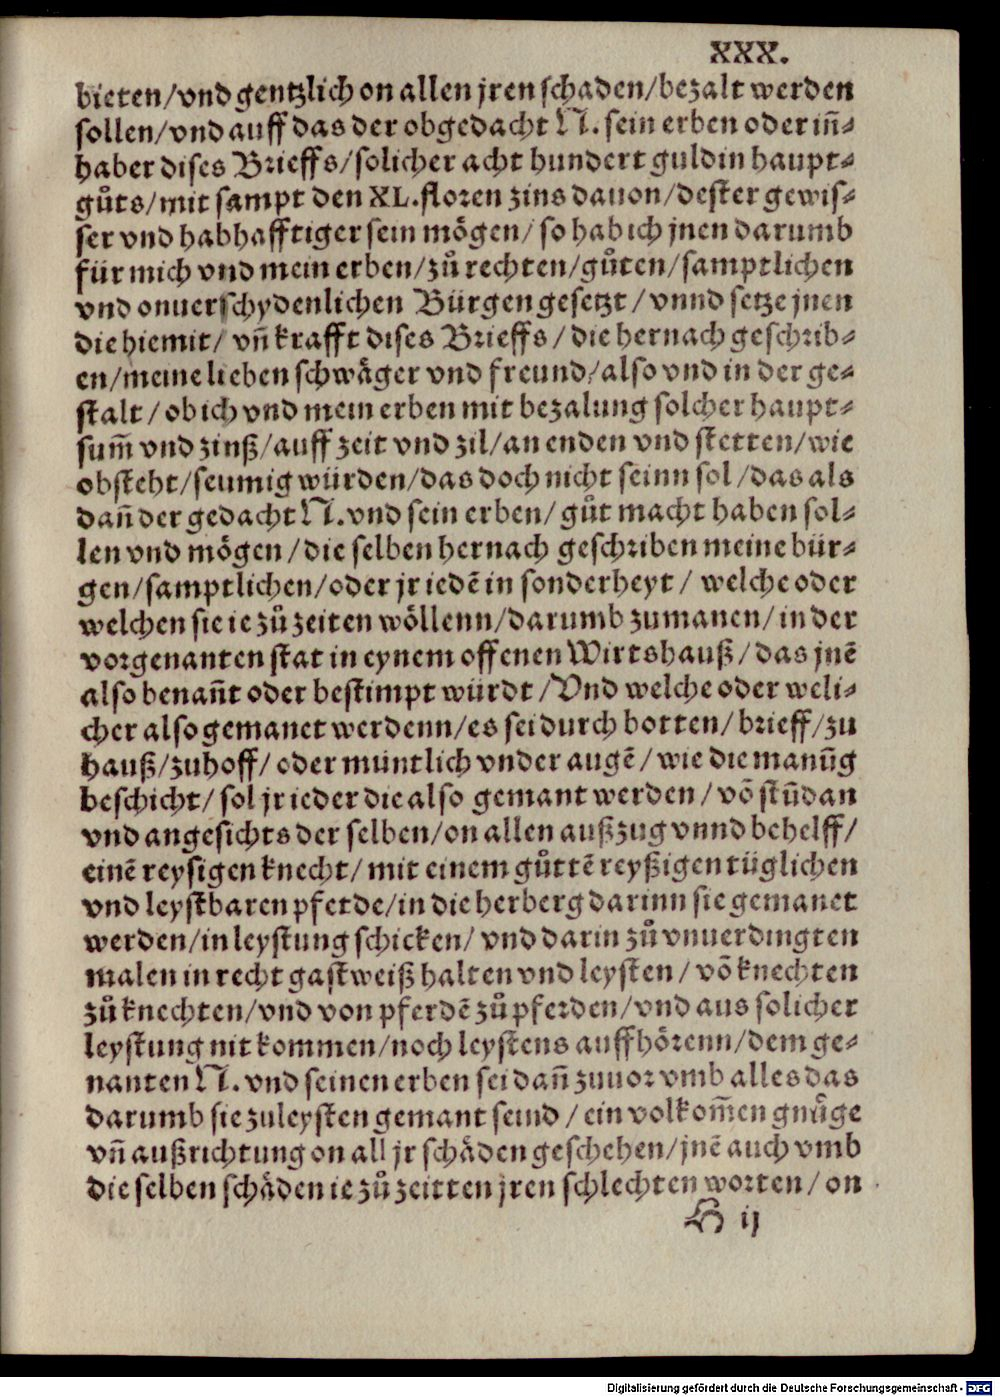 XXX.
bieten/vnd gentzlich on allen jren schaden/bezalt werden
sollen/vnd auff das der obgedacht N. sein erben oder in̄⸗
haber dises Brieffs/solicher acht hundert guldin haupt⸗
gůts/mit sampt den XL.floren zins dauon/dester gewis⸗
ser vnd habhafftiger sein mögen/ so hab ich jnen darumb
für mich vnd mein erben/zů rechten/gůten/samptlichen
vnd onuerschydenlichen Bürgen gesetzt/ vnnd setze jnen
die hiemit/ vn̄ krafft dises Brieffs/ die hernach geschrib⸗
en/meine lieben schwäger vnd freund/also vnd in der ge⸗
stalt/ ob ich vnd mein erben mit bezalung solcher haupt⸗
sum̄ vnd zinß/auff zeit vnd zil/an enden vnd stetten/wie
obsteht/seumig würden/das doch nicht seinn sol/das als
dan̄ der gedacht N.vnd sein erben/ gůt macht haben sol⸗
len vnd mögen/die selben hernach geschriben meine bür⸗
gen/samptlichen/oder jr iedē in sonderheyt/ welche oder
welchen sie ie zů zeiten wöllenn/darumb zumanen/in der
vorgenanten stat in eynem offenen Wirtshauß/das jnē
also benan̄t oder bestimpt würdt/Vnd welche oder weli⸗
cher also gemanet werdenn/es sei durch botten/brieff/zu
hauß/zuhoff/ oder müntlich vnder augē/wie die manūg
beschicht/ sol jr ieder die also gemant werden/ vō stūdan
vnd angesichts der selben/on allen außzug vnnd behelff/
einē reysigen knecht/ mit einem gůttē reyßigen tüglichen
vnd leystbaren pferde/in die herberg darinn sie gemanet
werden/in leystung schicken/ vnd darin zů vnuerdingten
malen in recht gastweiß halten vnd leysten/ vō knechten
zů knechten/vnd von pferdē zů pferden/vnd aus solicher
leystung nit kommen/noch leystens auffhörenn/dem ge⸗
nanten N. vnd seinen erben sei dan̄ zuuor vmb alles das
darumb sie zuleysten gemant seind/ ein volkom̄en gnůge
vn̄ außrichtung on all jr schäden geschehen/jnē auch vmb
die selben schäden ie zů zeitten jren schlechten worten/ on
H ij
Digitalisierung gefördert durch die Deutsche Forschungsgemeinschaft - DFG